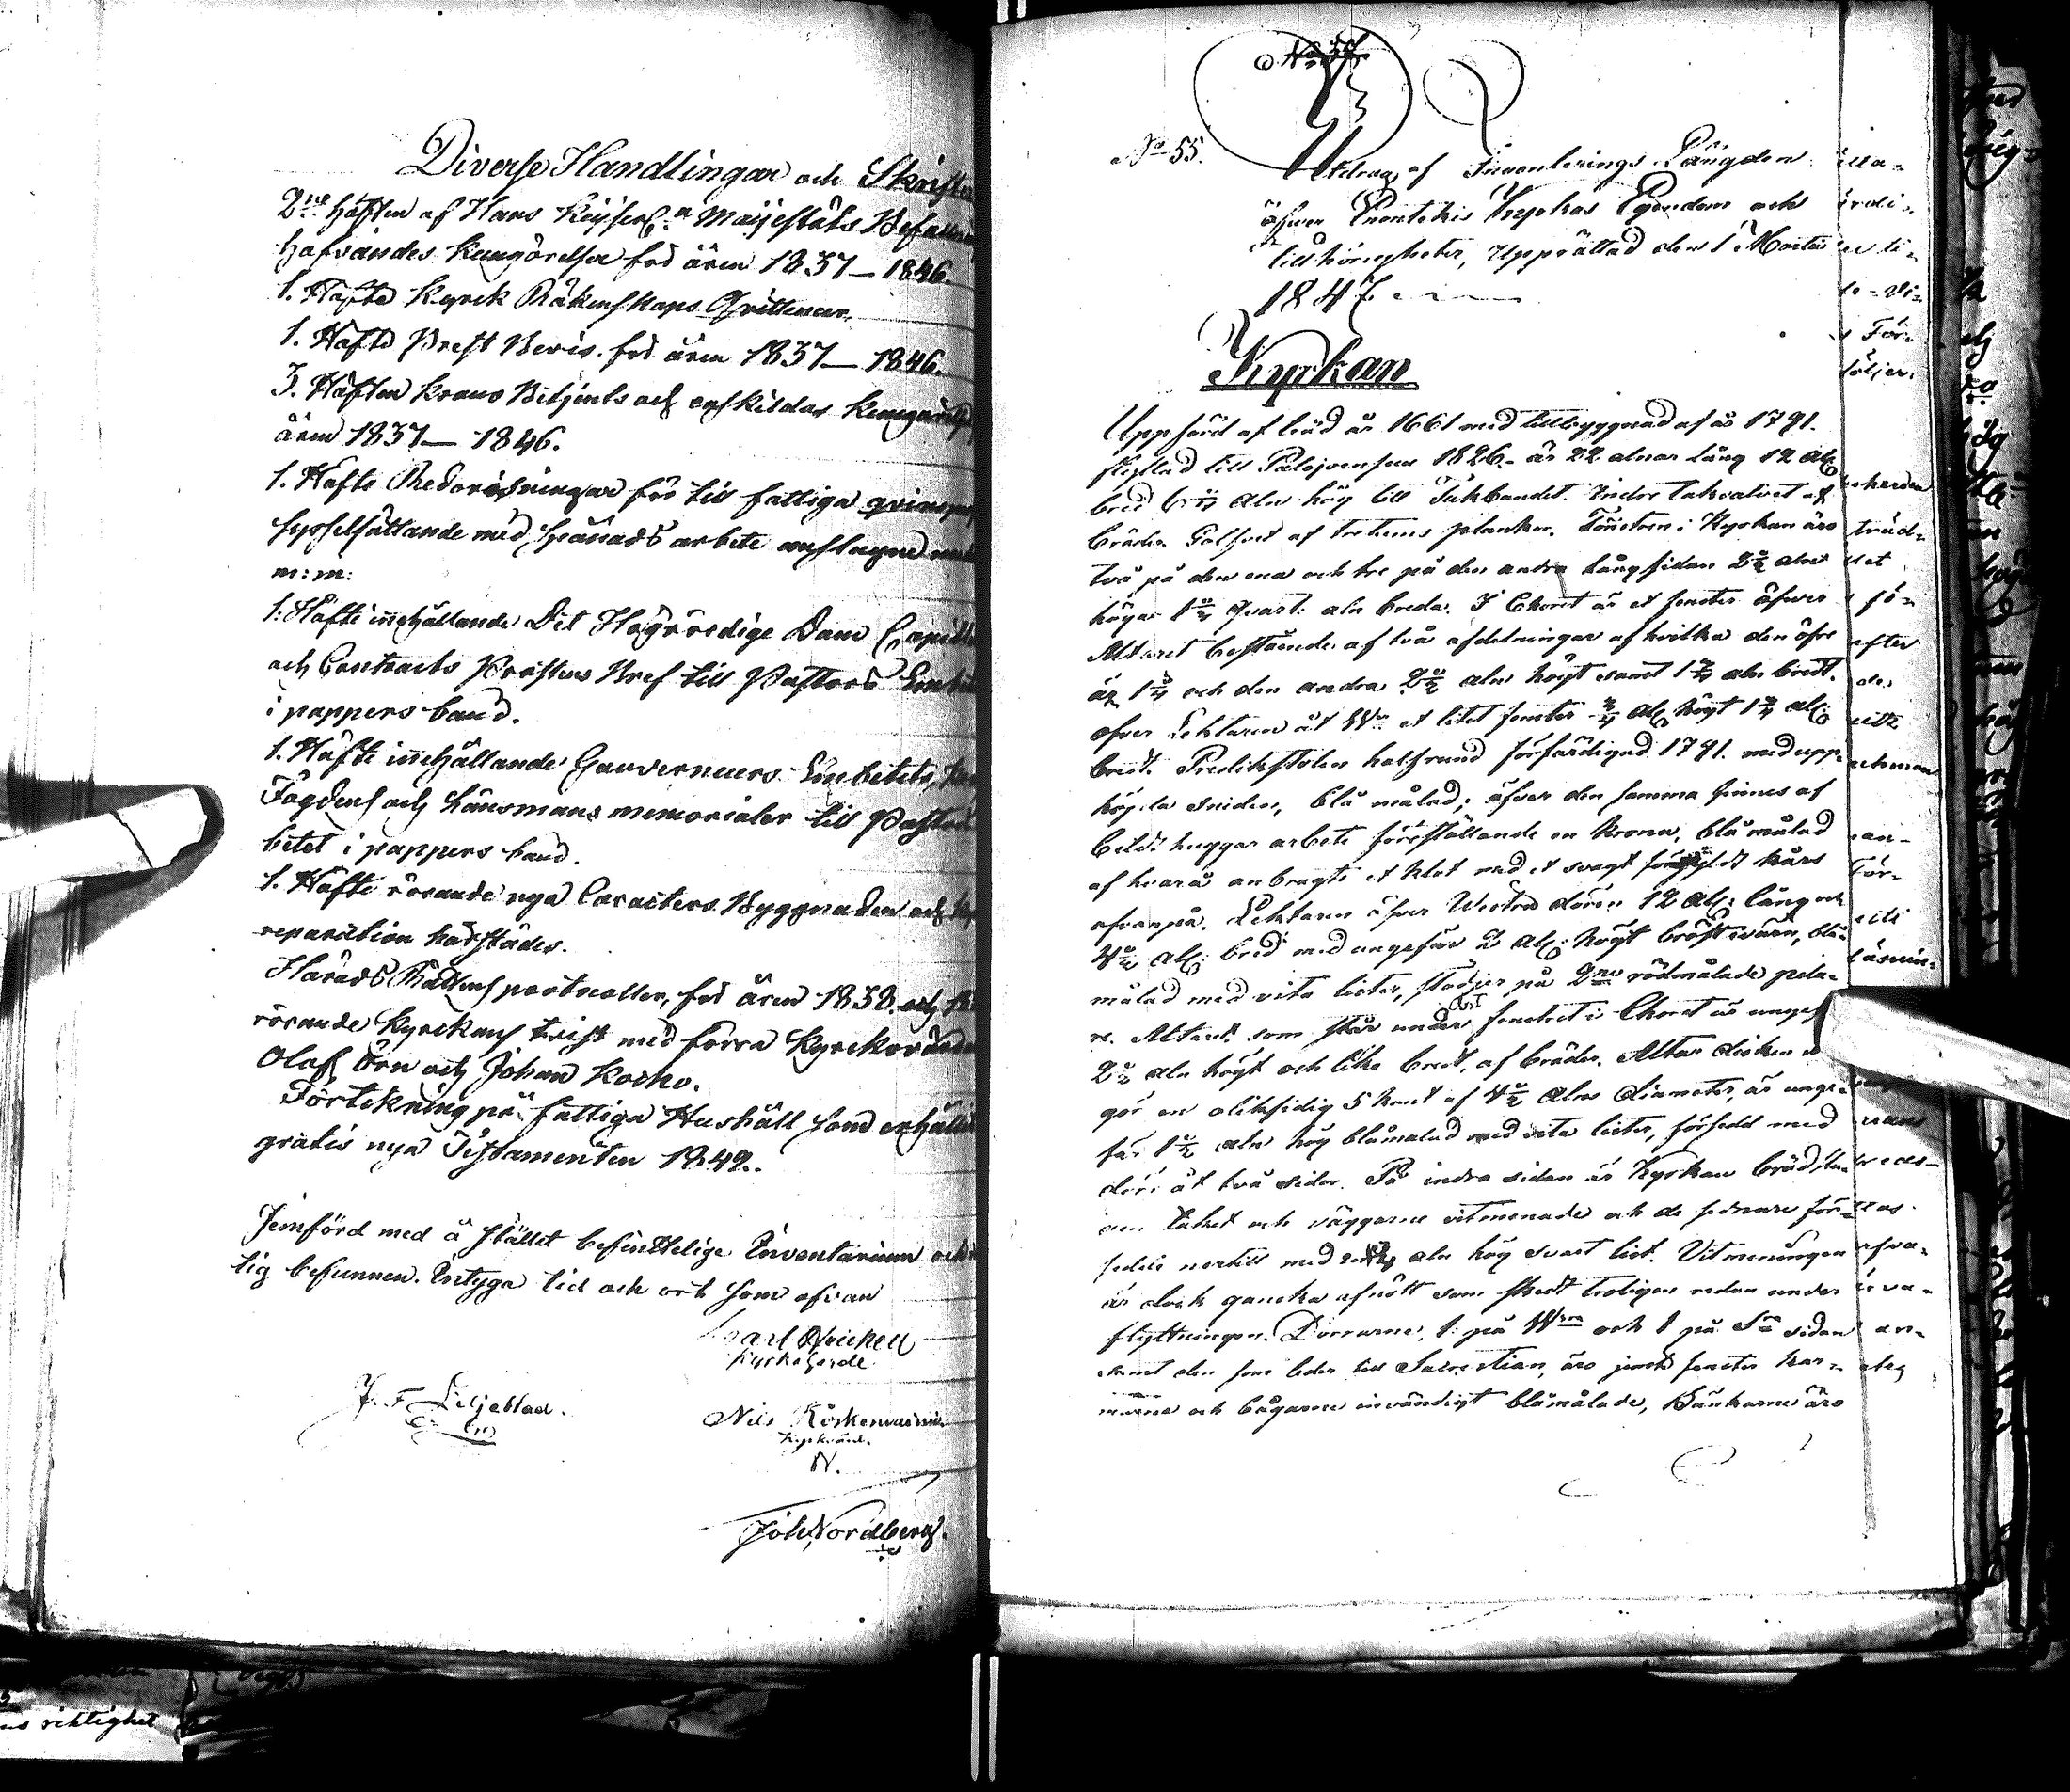 Diverse Handlingar och Skrifter
2ne Häften af Hans Keijserl.a Maijestäts Befallnings
hafvandes Kungörelser för åren 1837–1846.
1. Häfte Kyrck Räkenskaps Qvittencer
1. Häfte Prest Bevis för åren 1837–1846.
3. Häften Krono Betjents och enskildas Kungörelser
åren 1837–1846.
1. Häfte Redovisningar för till fattiga
sysselsättande med spånads arbete anslagne
m: m:
1. Häfte innehållande Det Högvördige Dom Capitlets
och Contracts Prostens Bref till Pastors Embetet
i pappers band.
1. Häfte innehållande Gouverneurs Embetets,
Fogdens och Länsmans memorialer till Pastors
betet i pappers band.
1. Häfte rörande nya Caracters Byggnaden och
reparation härstädes.
Härads Rättens protocoller, för åren 1838 och
rörande Kyrckans tvist med förra Kyrckovärden
Olof Örn och Johan Kosko.
Förtekning på fattiga Hushåll som erhållit
gratis nya Testamenten 1849.
Jemförd med å stället befintelige Inventarium och
tig befunnen. Intyga tid och ort som ofvan
Carl Michell
Kyrkoherde
J. F. Liljeblad.
Nils
Kyrkvärd.
N.
Joh. Nordberg.
ns riktighet
No 55.
Utdrag af Inventerings Längden
öfver Enontekis Kyrkas Egendom och
tillhörigheter, Upprättad den 1 Martii
1847
Kyrkan
Uppförd af träd år 1661 med tillbyggnad af år 1791.
flyttad till Palojoensuu 1826. är 22 alnar lång 12 aln
bred 6 aln hög till Takbandet. Inder takvalvet af
bräder Golfvet af tretums plankor. Fönstren i Kyrkan äro
två på den ena och tre på den andra långsidan 2½ aln
höga 1 Qvart: aln breda. I Choret är et fenster öfver
Altaret bestående af två afdelningar af hvilka den öfre
är 1 och den andra 2½ aln högt samt 1 aln bredt.
ofver Lektaren åt W et litet fenster ¾ aln högt 1 aln
bredt. Predikstolen halfrund förfärdigad 1791. med upp-
höjda snider, blå målad; öfver den samma finnes af
bildhuggar arbete föreställande en krona, blåmålad
af hvarå anbragts et klot med et svagt förgyldt kårs
ofvanpå. Lektaren öfver Westra dören 12 aln: lång och
4½ aln: bred med ungefär 2 aln: högt bröstvärn, blå-
målad med vita lister, stödjer på 2ne rödmålade pela-
re. Altaret som står under fenstret i Choret är ungef
2½ aln högt och lika bredt, af bräder. Altar disken
gör en oliksidig 5 kant af 4½ alns diameter, är unge-
fär 1½ aln hög blåmalad med vita lister, försedd med
dörr åt två sidor. På indra sidan är Kyrkan brädsla-
gen taket och väggarne vitmenade och de sednare för-
sedde nertill med en aln hög svart list. Vitmeningen
är dock ganska afnött som skedt troligen redan under
flyttningen. Dörrarne, 1. på Wtra och 1 på Sra sidan
samt den som leder till Sacristian, äro jemte fenster kar-
marne och bågarne invändigt blåmålade, Bänkarne äro